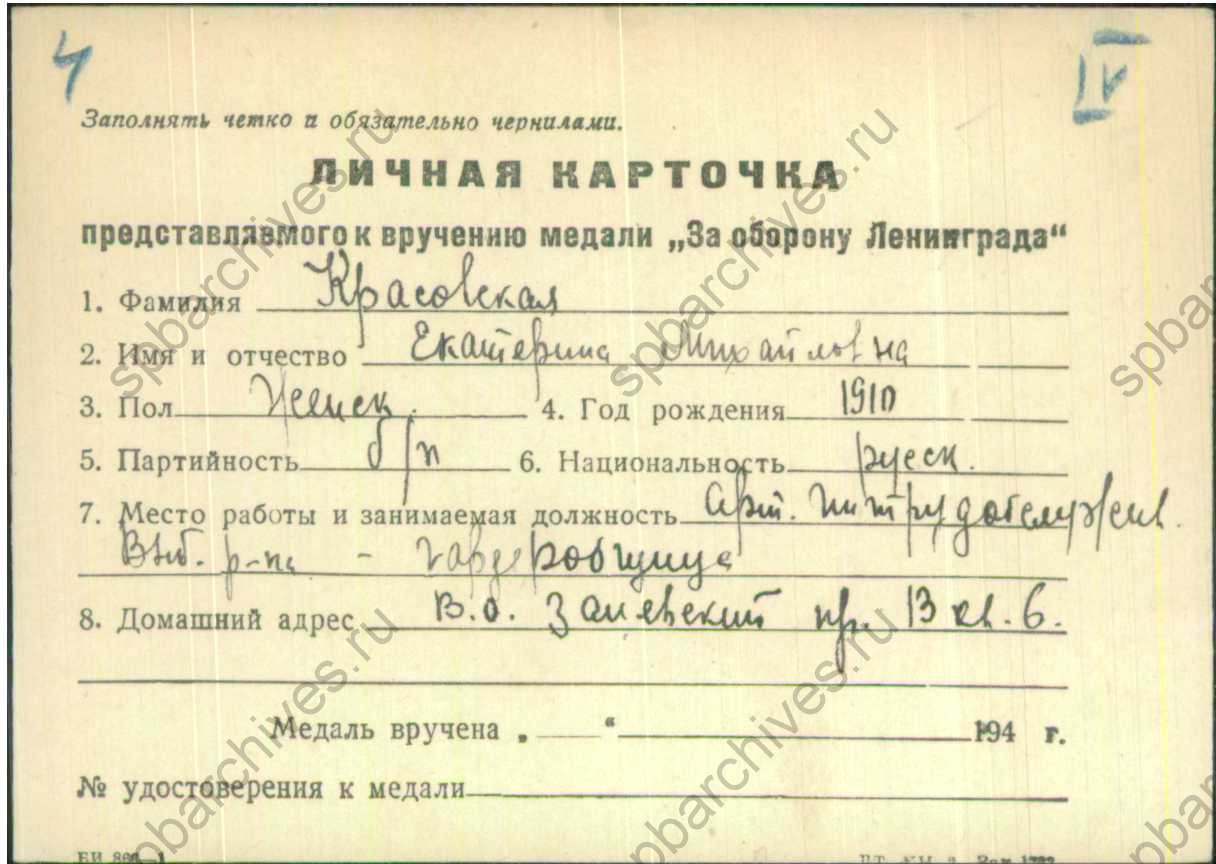 Ч IV
Заполнять четко и обязательно чернилами.
ЛИЧНАЯ КАРТОЧКА
представляемого к вручению медали „За оборону Ленинграда“
1. Фамилия Красовская
2. Имя и отчество Екатерина Михайловна
3. Пол Женск. 4. Год рождения 1910
5. Партийность б/п 6. Национальность русск.
7. Место работы и занимаемая должность Арт.
р-на - гардеробщица
8. Домашний адрес В.О. пр. 13 кв. 6.
Медаль вручена „ “ 194 г.
№ удостоверения к медали
spbarchives.ru
spbarchives.ru
spbarchives.ru
spbarchives.ru